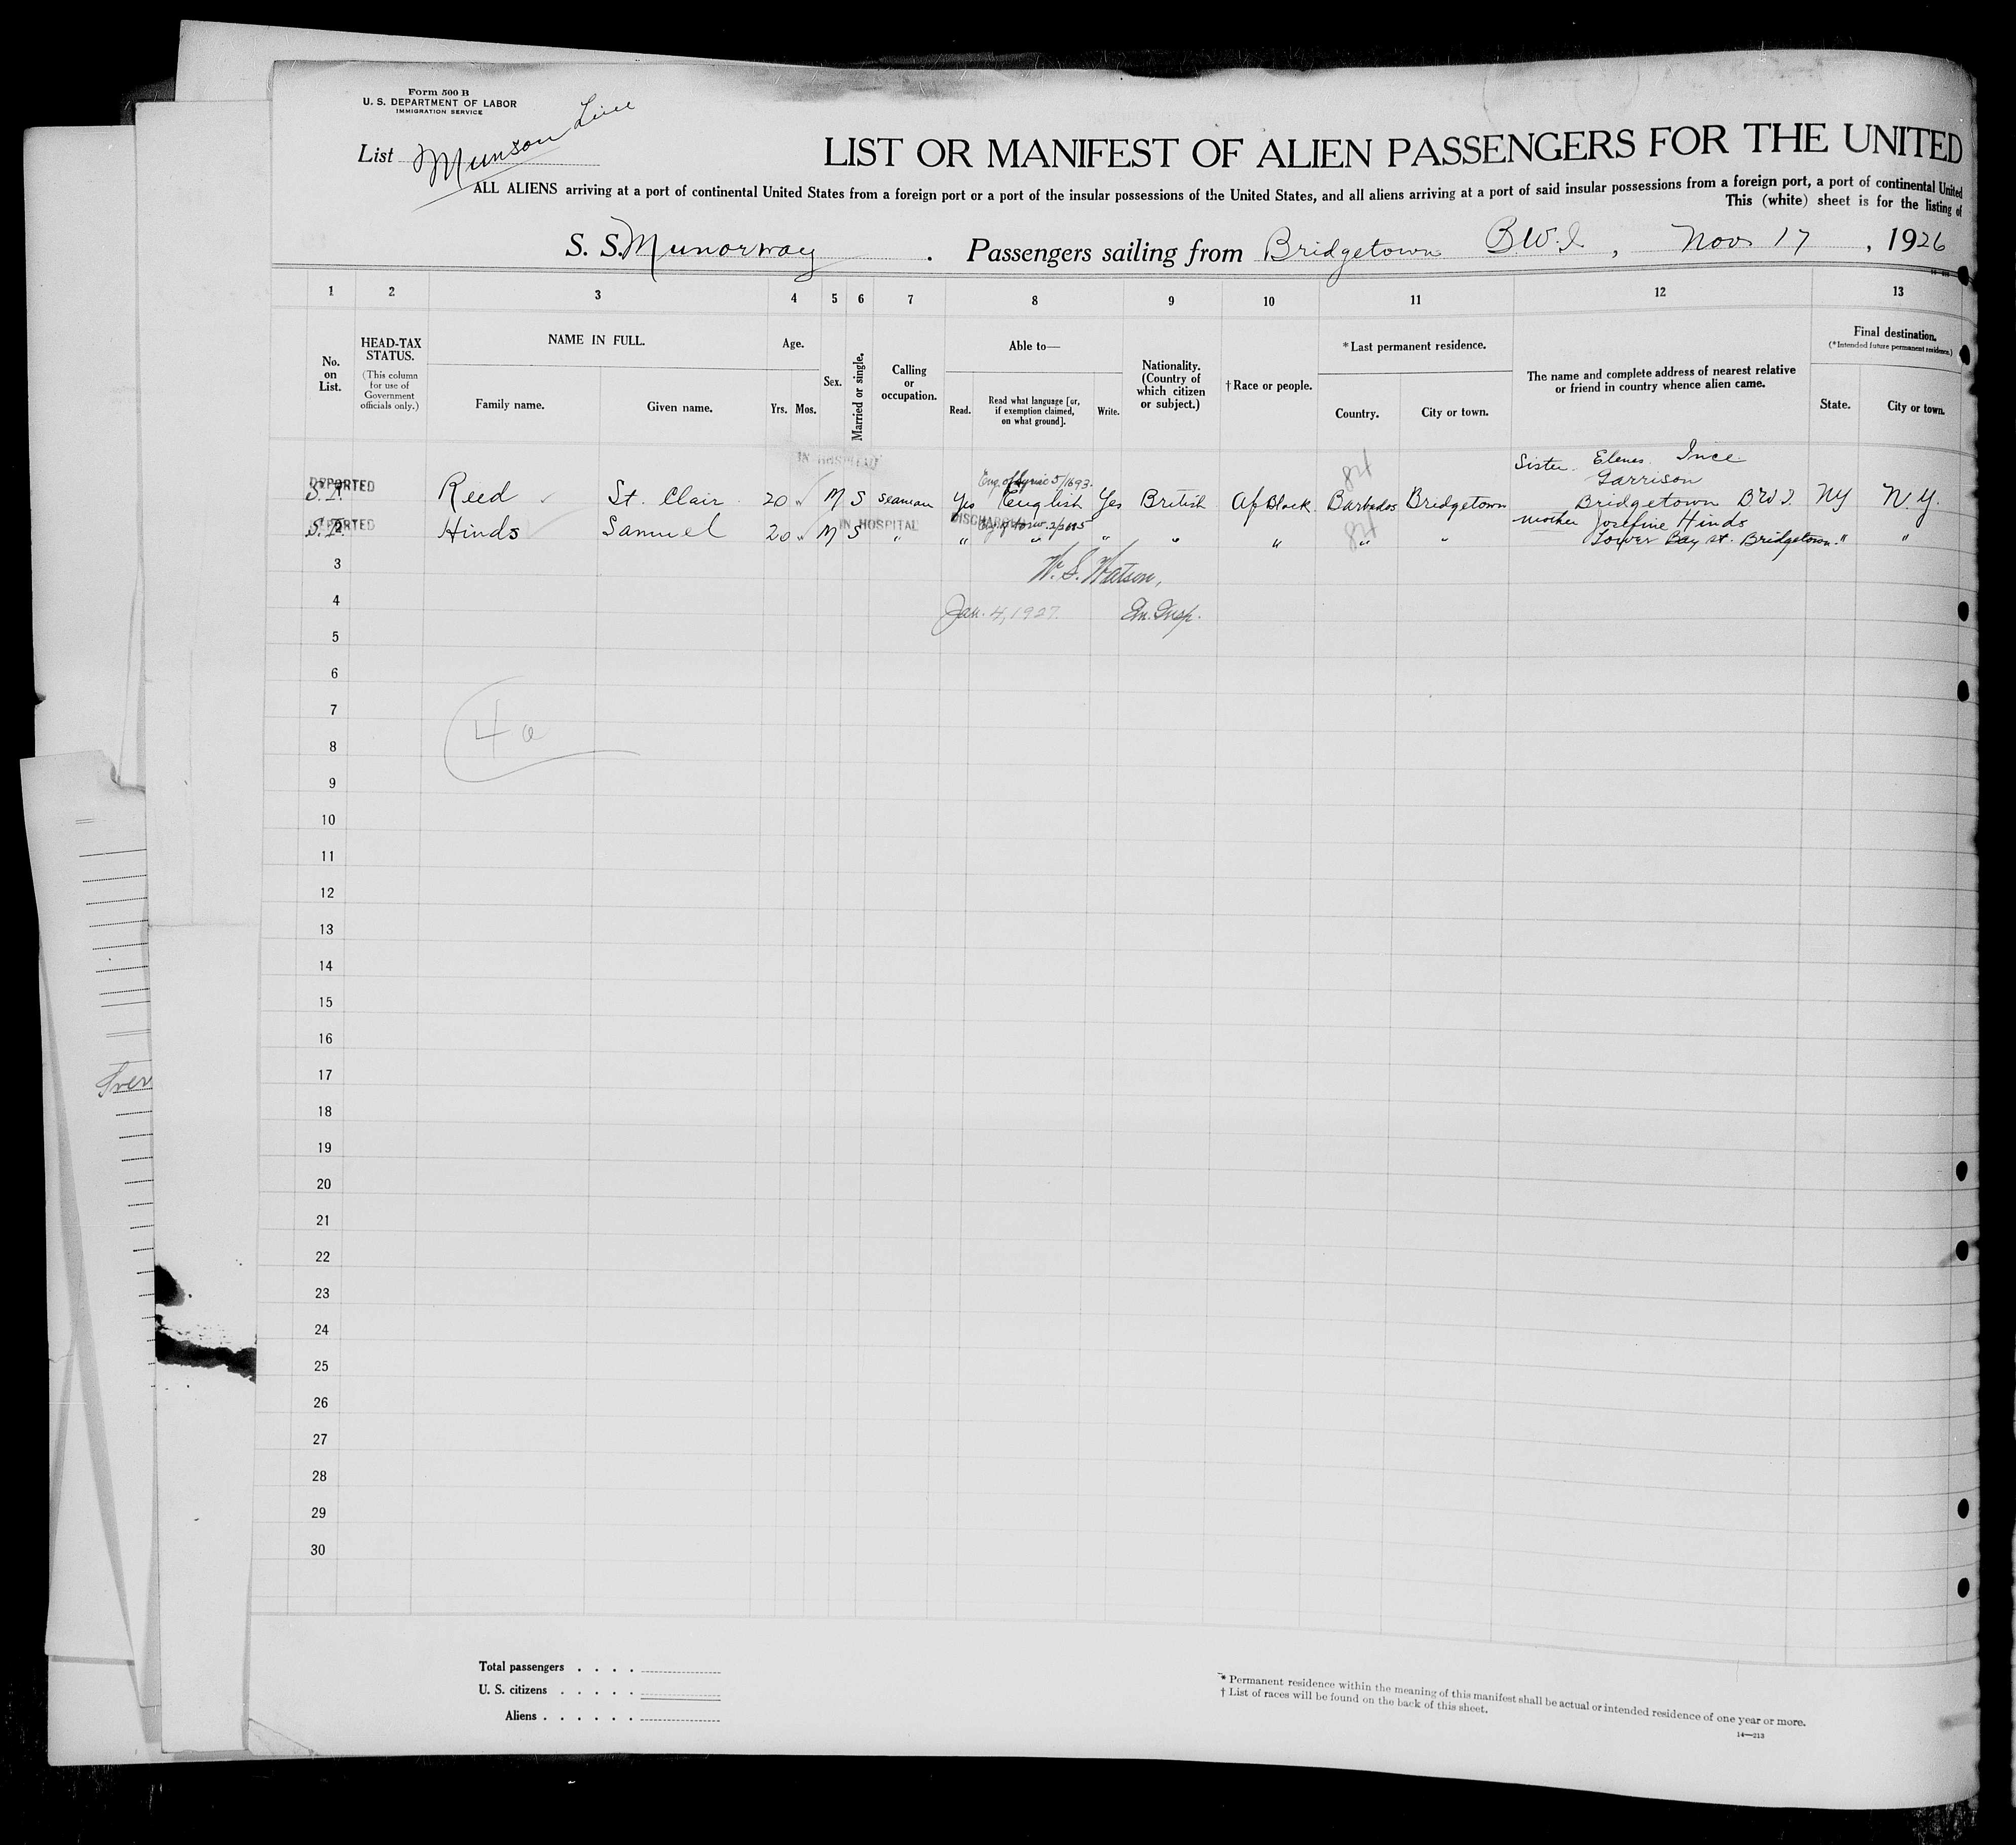 Form 500 B
U. S. DEPARTMENT OF LABOR
IMMIGRATION SERVICE
List Munson Line
LIST OR MANIFEST OF ALIEN PASSENGERS FOR THE UNITED
ALL ALIENS arriving at a port of continental United States from a foreign port or a port of the insular possessions of the United States, and all aliens arriving at a port of said insular possessions from a foreign port, a port of continental United
This (white) sheet is for the listing of
S. S. Munorway . Passengers sailing from Bridgetown B.W.I , Nov 17 , 1926
1 2 3 4 5 6 7 8 9 10 11 12 13
No. on List.
HEAD-TAX STATUS.
(This column for use of Government officials only.)
NAME IN FULL.
Family name. Given name.
Age.
Yrs. Mos.
Sex.
Married or single.
Calling or occupation.
Able to—
Read. Read what language [or, if exemption claimed, on what ground]. Write.
Nationality. (Country of which citizen or subject.)
† Race or people.
* Last permanent residence.
Country. City or town.
The name and complete address of nearest relative or friend in country whence alien came.
Final destination.
(* Intended future permanent residence.)
State. City or town.
IN HOSPITAL
84
Sister. Elenes Ince
Garrison
DEPORTED
S.I. Reed St. Clair 20 M S Seaman Yes English Yes British Af Black Barbados Bridgetown Bridgetown B.W.I. NY N.Y.
mother Josefine Hinds
DEPORTED IN HOSPITAL DISCHARGED 84
S.I. Hinds Samuel 20 M S " " " " " " " " Lower Bay st. Bridgetown " "
3
W. S. Watson,
4
Jan. 4, 1927. Im. Insp.
5
6
7
4a
8
9
10
11
12
13
14
15
16
17
18
19
20
21
22
23
24
25
26
27
28
29
30
Total passengers . . . .
U. S. citizens . . . . .
Aliens . . . . . .
* Permanent residence within the meaning of this manifest shall be actual or intended residence of one year or more.
† List of races will be found on the back of this sheet.
14—213